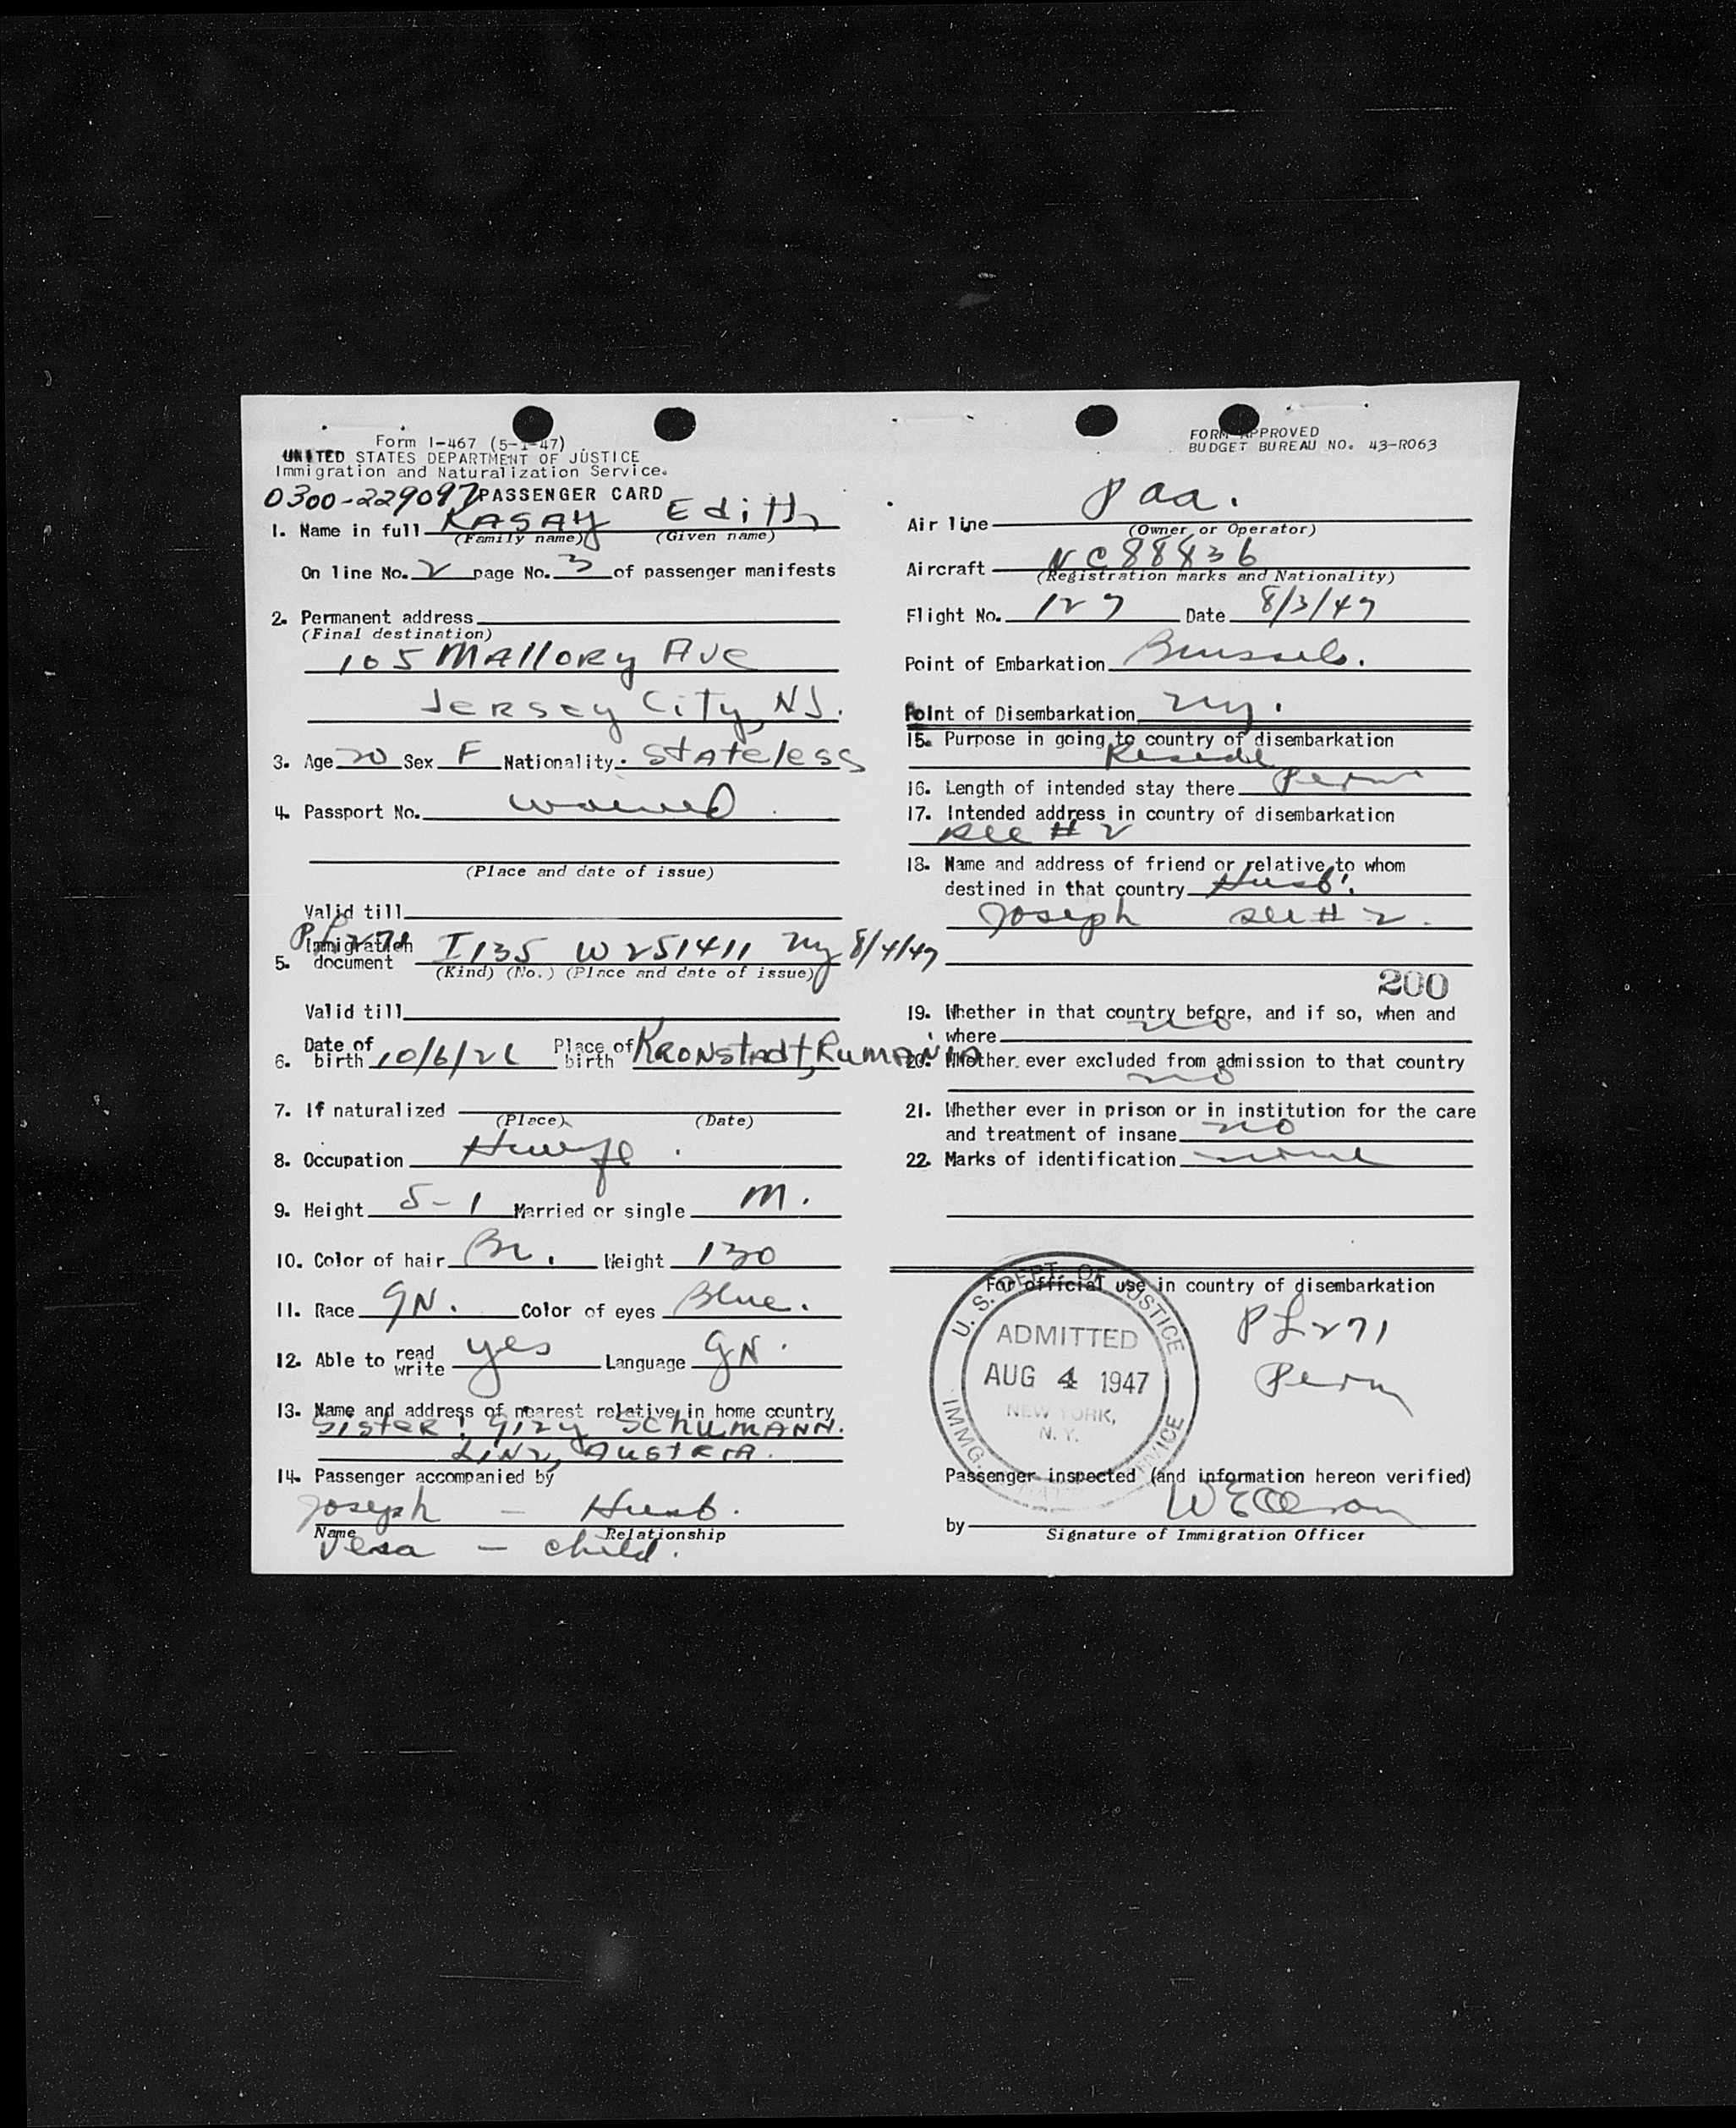 Form I-467 (5-1-47)
UNITED STATES DEPARTMENT OF JUSTICE
Immigration and Naturalization Service.
0300-229097 PASSENGER CARD
1. Name in full KASAY Edith
(Family name) (Given name)
On line No. 2 page No. 3 of passenger manifests
2. Permanent address
(Final destination)
105 Mallory Ave
Jersey City, NJ.
3. Age 20 Sex F Nationality. Stateless
4. Passport No. waived
(Place and date of issue)
Valid till
PL 271
5. Immigration document I 135 W251411 NY 8/4/47
(Kind) (No.) (Place and date of issue)
Valid till
6. Date of birth 10/6/26 Place of birth Kronstadt, Rumania
7. If naturalized
(Place) (Date)
8. Occupation Hwife.
9. Height 5-1 Married or single M.
10. Color of hair Br. Weight 130
11. Race GN. Color of eyes Blue.
12. Able to read write yes Language GN.
13. Name and address of nearest relative in home country
Sister: Gizy Schumann.
Linz, Austria.
14. Passenger accompanied by
Joseph - Husb.
Name Relationship
Vera - child.
FORM APPROVED
BUDGET BUREAU NO. 43-R063
Air line Paa.
(Owner or Operator)
Aircraft NC88836
(Registration marks and Nationality)
Flight No. 127 Date 8/3/47
Point of Embarkation Brussels.
Point of Disembarkation NY.
15. Purpose in going to country of disembarkation
Reside
16. Length of intended stay there Perm
17. Intended address in country of disembarkation
See # 2
18. Name and address of friend or relative to whom
destined in that country Husb:
Joseph See # 2.
200
19. Whether in that country before, and if so, when and
where no
20. Whether ever excluded from admission to that country
no
21. Whether ever in prison or in institution for the care
and treatment of insane no
22. Marks of identification none
For official use in country of disembarkation
U. S. DEPT. OF JUSTICE
ADMITTED
AUG 4 1947
NEW YORK,
N. Y.
IMMG. SERVICE
PL271
Perm
Passenger inspected (and information hereon verified)
by
Signature of Immigration Officer